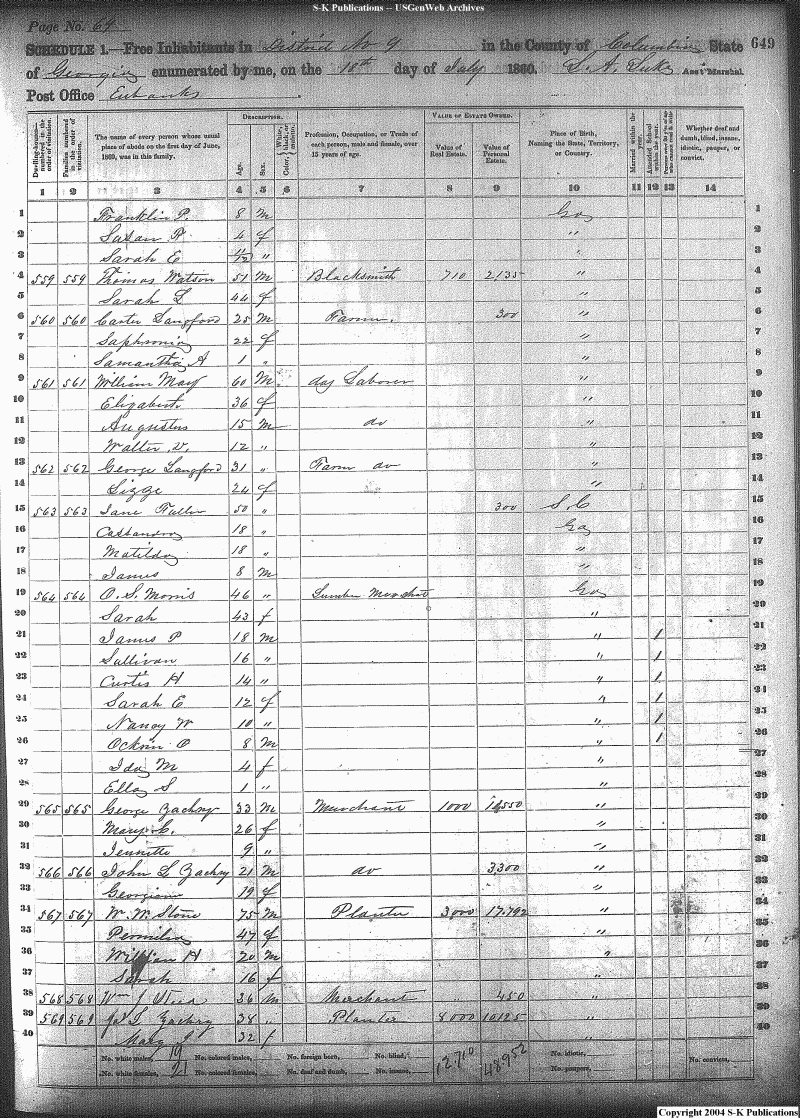 S-K Publications -- USGenWeb Archives
Page No. 64
SCHEDULE 1.—Free Inhabitants in District No 9 in the County of Columbia State 649
of Georgia enumerated by me, on the 10th day of July 1860. Ass't Marshal.
Post Office Eubanks
Dwelling-houses— numbered in the order of visitation.
Families numbered in the order of visitation.
The name of every person whose usual place of abode on the first day of June, 1860, was in this family.
DESCRIPTION.
Age.
Sex.
Color, White, black, or mulatto.
Profession, Occupation, or Trade of each person, male and female, over 15 years of age.
VALUE OF ESTATE OWNED.
Value of Real Estate.
Value of Personal Estate.
Place of Birth, Naming the State, Territory, or Country.
Married within the year.
Attended School within the year.
Whether deaf and dumb, blind, insane, idiotic, pauper, or convict.
1 2 3 4 5 6 7 8 9 10 11 12 13 14
1 Franklin P. 8 M Ga 1
2 Susan R 4 f " 2
3 Sarah E " " 3
4 559 559 Thomas Watson 51 M Blacksmith 710 2135 " 4
5 Sarah L 44 f " 5
6 560 560 Carter Langford 25 M Farmer. 300 " 6
7 Saphronia 22 f " 7
8 Samantha A 1 " " 8
9 561 561 William May 60 M day Laborer " 9
10 Elizabeth 36 f " 10
11 Augustus 15 M do " 11
12 Walter V. 12 " " 12
13 562 562 George Langford 31 " Farm do " 13
14 Lizze 24 f " 14
15 563 563 Jane Fuller 50 " 300 S. C 15
16 Cassandra 18 " Ga 16
17 Matilda 18 " " 17
18 James 8 M " 18
19 564 564 O. S. Morris 46 " Lumber Merchat Ga 19
20 Sarah 43 f " 20
21 James P 18 M " 1 21
22 Sullivan 16 " " 1 22
23 Curtis H 14 " " 1 23
24 Sarah E 12 f " 1 24
25 Nancy W 10 " " 1 25
26 O 8 M " 1 26
27 Ida M 4 f " 27
28 Ella S 1 " " 28
29 565 565 George Zachry 33 M Merchant 1000 " 29
30 Mary C. 26 f " 30
31 Jennette 9 " " 31
32 566 566 John L Zachry 21 M do 3,300 " 32
33 Georgiana 19 f " 33
34 567 567 W. W. Stone 75 M Planter 3000 17.792 " 34
35 Permilia 47 f " 35
36 William H 20 M " 36
37 Sarah 16 f " 37
38 568 568 Wm J 36 M Merchant 450 " 38
39 569 569 Zachry 38 " Planter 8000 10125 " 39
40 Mary 32 f 40
No. white males, 19 No. colored males, No. foreign born, No. blind, 12710 48952 No. idiotic, No. convicts,
No. white females, 21 No. colored females, No. deaf and dumb, No. insane, No. paupers,
Copyright 2004 S-K Publications